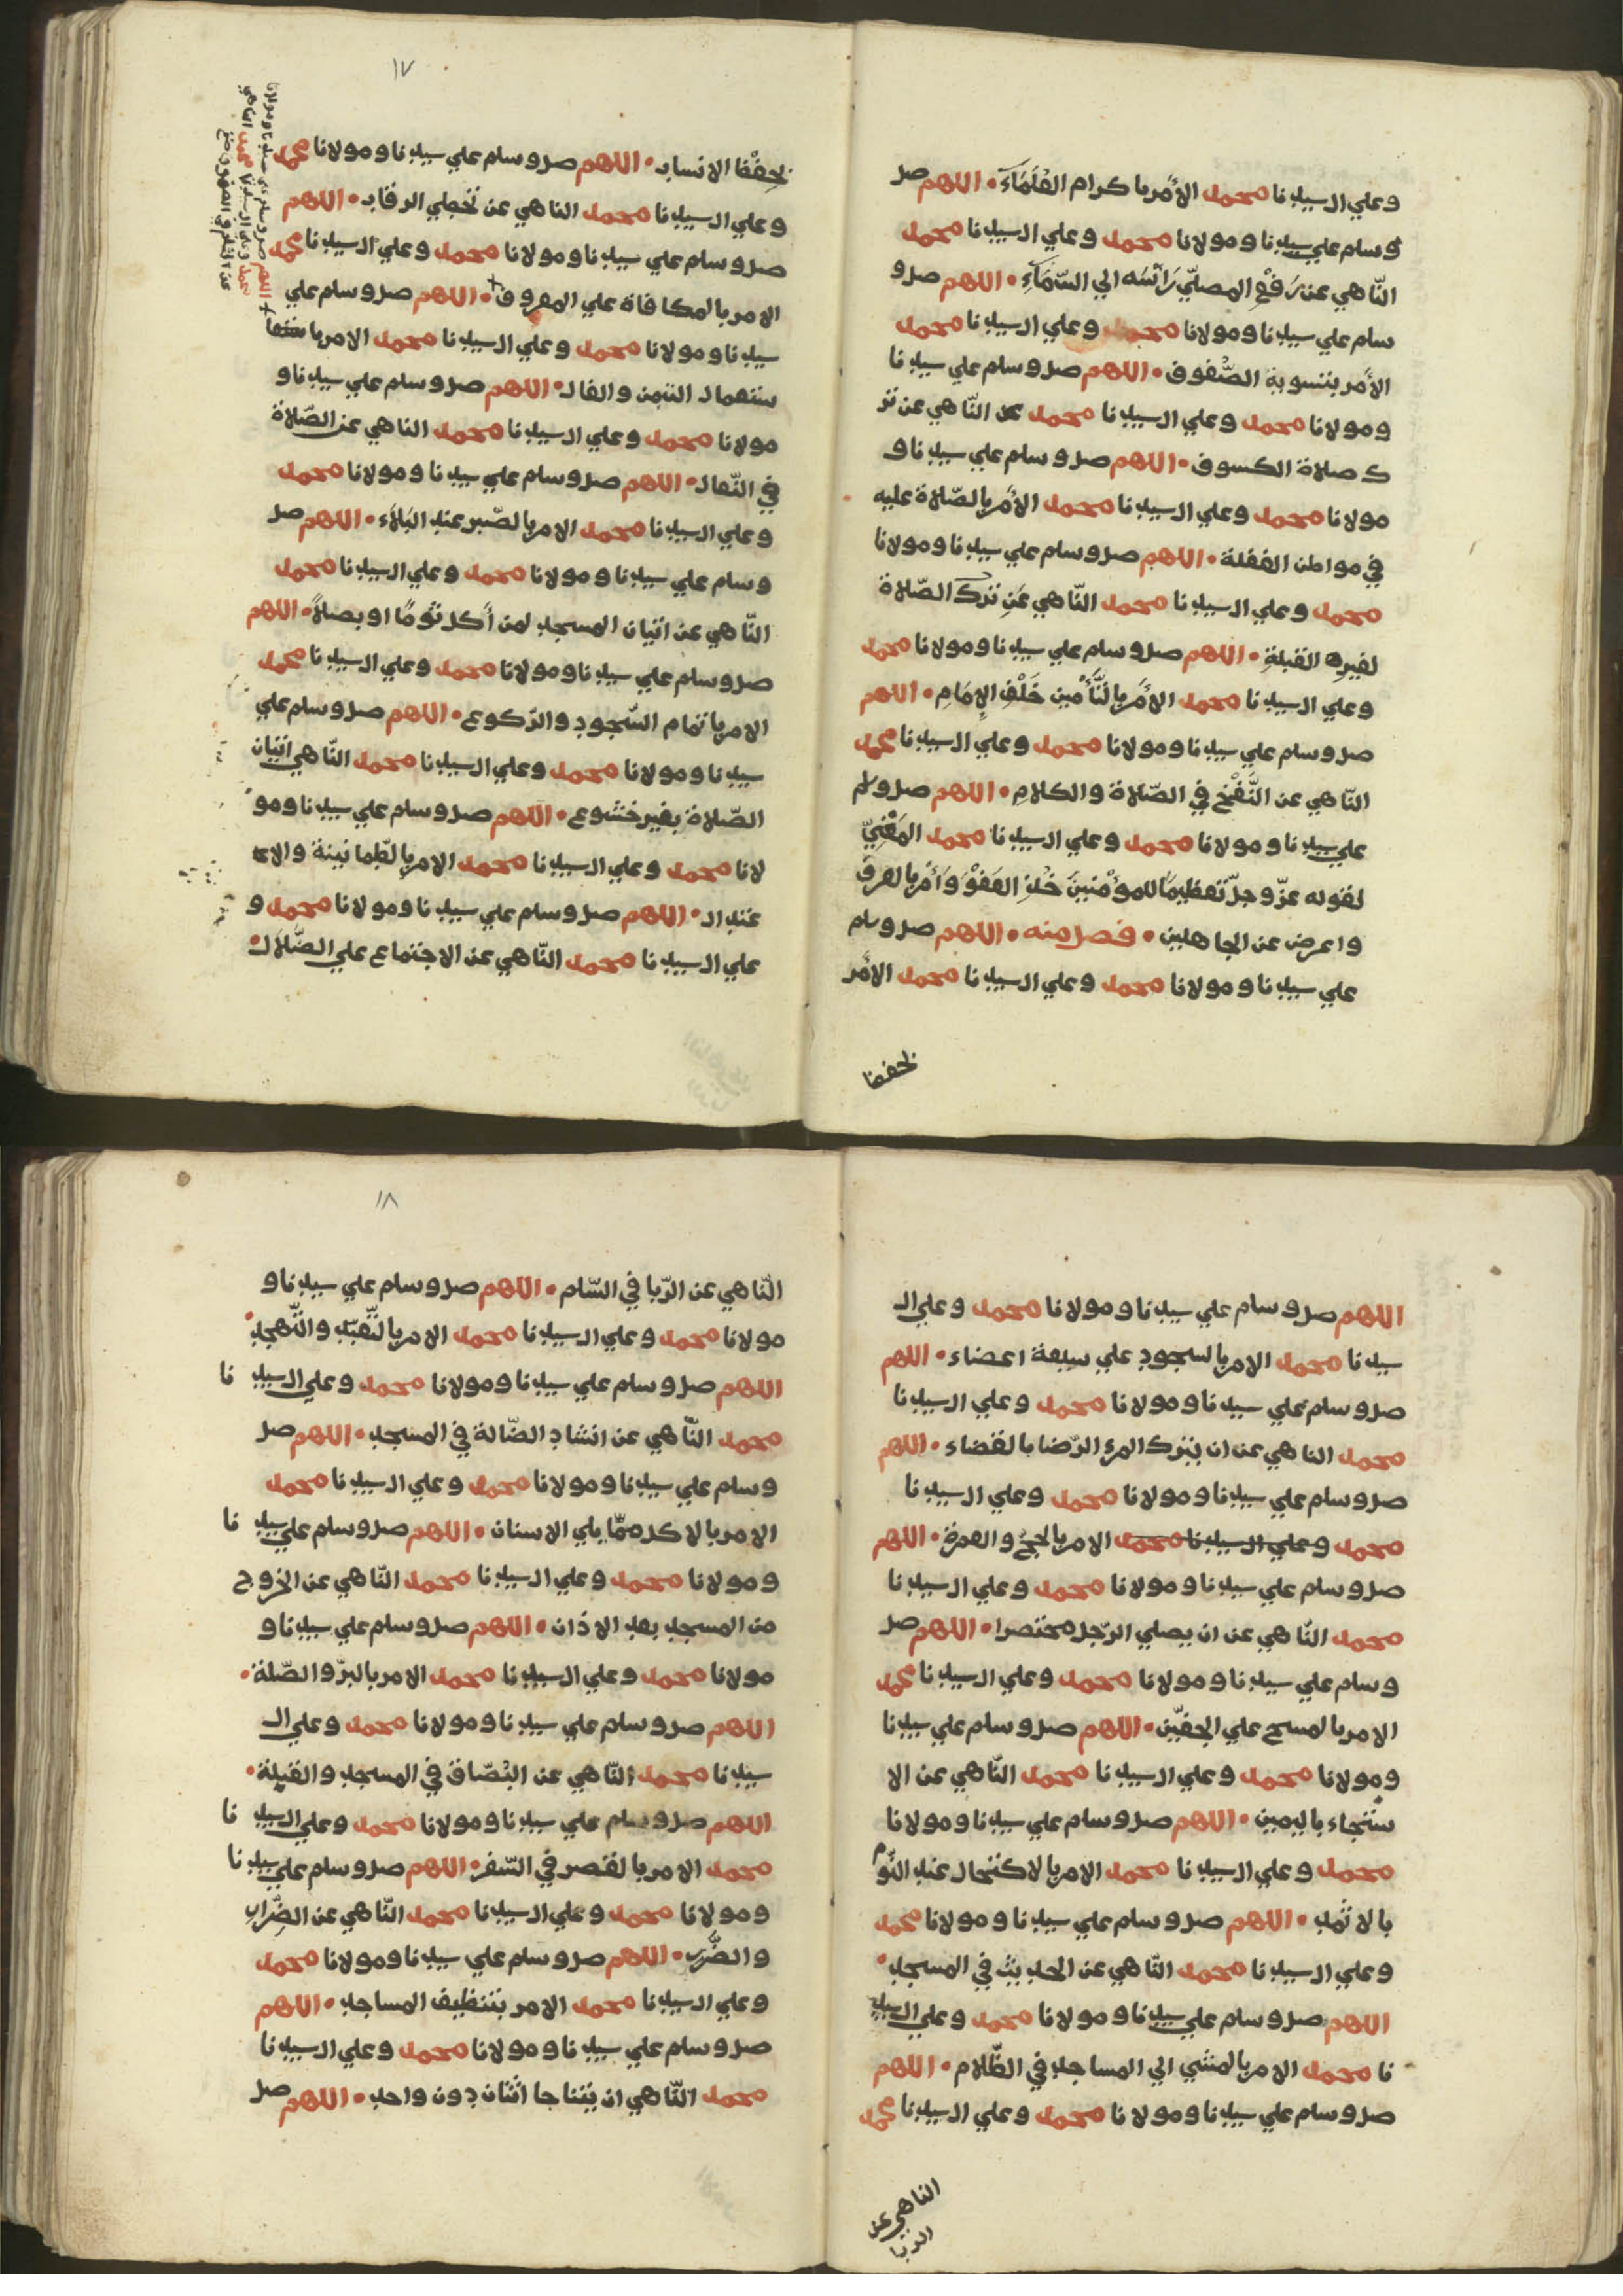 وعلي ال سيدنا محمد الأمر باكرام العلماء • اللهم صل
وسلم علي سيدنا ومولانا محمد وعلي ال سيدنا محمد
النّاهي عن رَفْعِ المصلّي رَأسَه الي السّمَاءِ • اللهم صل و
سلم علي سيدنا ومولانا محمد وعلي ال سيدنا محمد
الأمر بتسوية الصُّفوف • اللهم صل وسلم علي سيدنا
ومولانا محمد وعلي ال سيدنا محمد النّاهي عن تر
ك صلاة الكسوف • اللهم صل وسلم علي سيدنا و
مولانا محمد وعلي ال سيدنا محمد الأمر بالصّلاة عليه
في مواطن الغفلة • اللهم صل وسلم علي سيدنا ومولانا
محمد وعلي ال سيدنا محمد النّاهي عَنِ ترك الصّلاة
لغير القبلةِ • اللهم صل وسلم علي سيدنا ومولانا محمد
وعلي ال سيدنا محمد الأمر بالتَّأمين خَلْفَ الإمَامِ • اللهم
صل وسلم علي سيدنا ومولانا محمد وعلي ال سيدنا محمد
النّاهي عن النَّفْخِ في الصّلاة والكلامِ • اللهم صل وسلم
علي سيدنا ومولانا محمد وعلي ال سيدنا محمد المَعْنِيّ
لقوله عزّ وجلّ تعظيمًا للمؤمنينَ خُذِ العَفْوَ وَأمُر بالعرف
واعرض عن الجاهلين • فصل منه • اللهم صل وسلم
علي سيدنا ومولانا محمد وعلي ال سيدنا محمد الأمر
بحفظ
بحِفْظ الانساب • اللهم صل وسلم علي سيدنا ومولانا محمد
وعلي ال سيدنا محمد الناهي عن تخطي الرقاب • اللهم
صل وسلم علي سيدنا ومولانا محمد وعلي ال سيدنا محمد
الامر بالمكافاة علي المعروف • اللهم صل وسلم علي
سيدنا ومولانا محمد وعلي ال سيدنا محمد الامر با
ستعمال التيمن والفال • اللهم صل وسلم علي سيدنا و
مولانا محمد وعلي ال سيدنا محمد الناهي عن الصّلاة
في النّعال • اللهم صل وسلم علي سيدنا ومولانا محمد
وعلي ال سيدنا محمد الامر بالصّبر عند البَلاَء • اللهم صل
وسلم علي سيدنا ومولانا محمد وعلي ال سيدنا محمد
النّاهي عن اتيان المسجد لمن أكل ثُومًا او بصلاً • اللهم
صل وسلم علي سيدنا ومولانا محمد وعلي ال سيدنا محمد
الامر باتمام السّجود والرّكوع • اللهم صل وسلم علي
سيدنا ومولانا محمد وعلي ال سيدنا محمد النّاهي اتيان
الصّلاة بغير خشوع • اللهم صل وسلم علي سيدنا ومو
لانا محمد وعلي ال سيدنا محمد الامر بالطمانينة والا
عتدال • اللهم صل وسلم علي سيدنا ومولانا محمد و
علي ال سيدنا محمد النّاهي عن الاجتماع علي الضَّلاَل •
اللهم صل وسلم علي سيدنا ومولانا محمد وعلي ال
سيدنا محمد الامر بالسجود علي سبعة اعضاء • اللهم
صل وسلم علي سيدنا ومولانا محمد وعلي ال سيدنا
محمد الناهي عن ان يترك المرء الرّضا بالقضاء • اللهم
صل وسلم علي سيدنا ومولانا محمد وعلي ال سيدنا
محمد وعلي ال سيدنا محمد الامر بالحجّ والعمرة • اللهم
صل وسلم علي سيدنا ومولانا محمد وعلي ال سيدنا
محمد النّاهي عن ان يصلي الرّجل مختصرا • اللهم صل
وسلم علي سيدنا ومولانا محمد وعلي ال سيدنا محمد
الامر بالمسح علي الخفّين • اللهم صل وسلم علي سيدنا
ومولانا محمد وعلي ال سيدنا محمد النّاهي عن الا
ستنجاء باليمين • اللهم صل وسلم علي سيدنا ومولانا
محمد وعلي ال سيدنا محمد الامر بالاكتحال عند النّوم
بالاثمد • اللهم صل وسلم علي سيدنا ومولانا محمد
وعلي ال سيدنا محمد النّاهي عن الحديث في المسجد •
اللهم صل وسلم علي سيدنا ومولانا محمد وعلي ال سيد
نا محمد الامر بالمشي الي المساجد في الظّلام • اللهم
صل وسلم علي سيدنا ومولانا محمد وعلي ال سيدنا محمد
الناهي عن
الربا
١٧
١٨
النّاهي عن الرّبا في السّلم • اللهم صل وسلم علي سيدنا و
مولانا محمد وعلي ال سيدنا محمد الامر بالتّعبّد والتّهجد •
اللهم صل وسلم علي سيدنا ومولانا محمد وعلي ال سيد نا
محمد النّاهي عن انشاد الضّالة في المسجد • اللهم صل
وسلم علي سيدنا ومولانا محمد وعلي ال سيدنا محمد
الامر بالاكل ممّا يلي الاسنان • اللهم صل وسلم علي سيد نا
ومولانا محمد وعلي ال سيدنا محمد النّاهي عن الخروج
من المسجد بعد الاذان • اللهم صل وسلم علي سيدنا و
مولانا محمد وعلي ال سيدنا محمد الامر بالبرّ والصّلة •
اللهم صل وسلم علي سيدنا ومولانا محمد وعلي ال
سيدنا محمد النّاهي عن البُصّاق في المسجد والقبلة •
اللهم صل وسلم علي سيدنا ومولانا محمد وعلي ال سيد نا
محمد الامر بالقصر في السّفر • اللهم صل وسلم علي سيد نا
ومولانا محمد وعلي ال سيدنا محمد النّاهي عن الضِّرار
والضَّرر • اللهم صل وسلم علي سيدنا ومولانا محمد
وعلي ال سيدنا محمد الامر بتنظيف المساجد • اللهم
صل وسلم علي سيدنا ومولانا محمد وعلي ال سيدنا
محمد النّاهي ان يتناجا اثنان دون واحد • اللهم صل